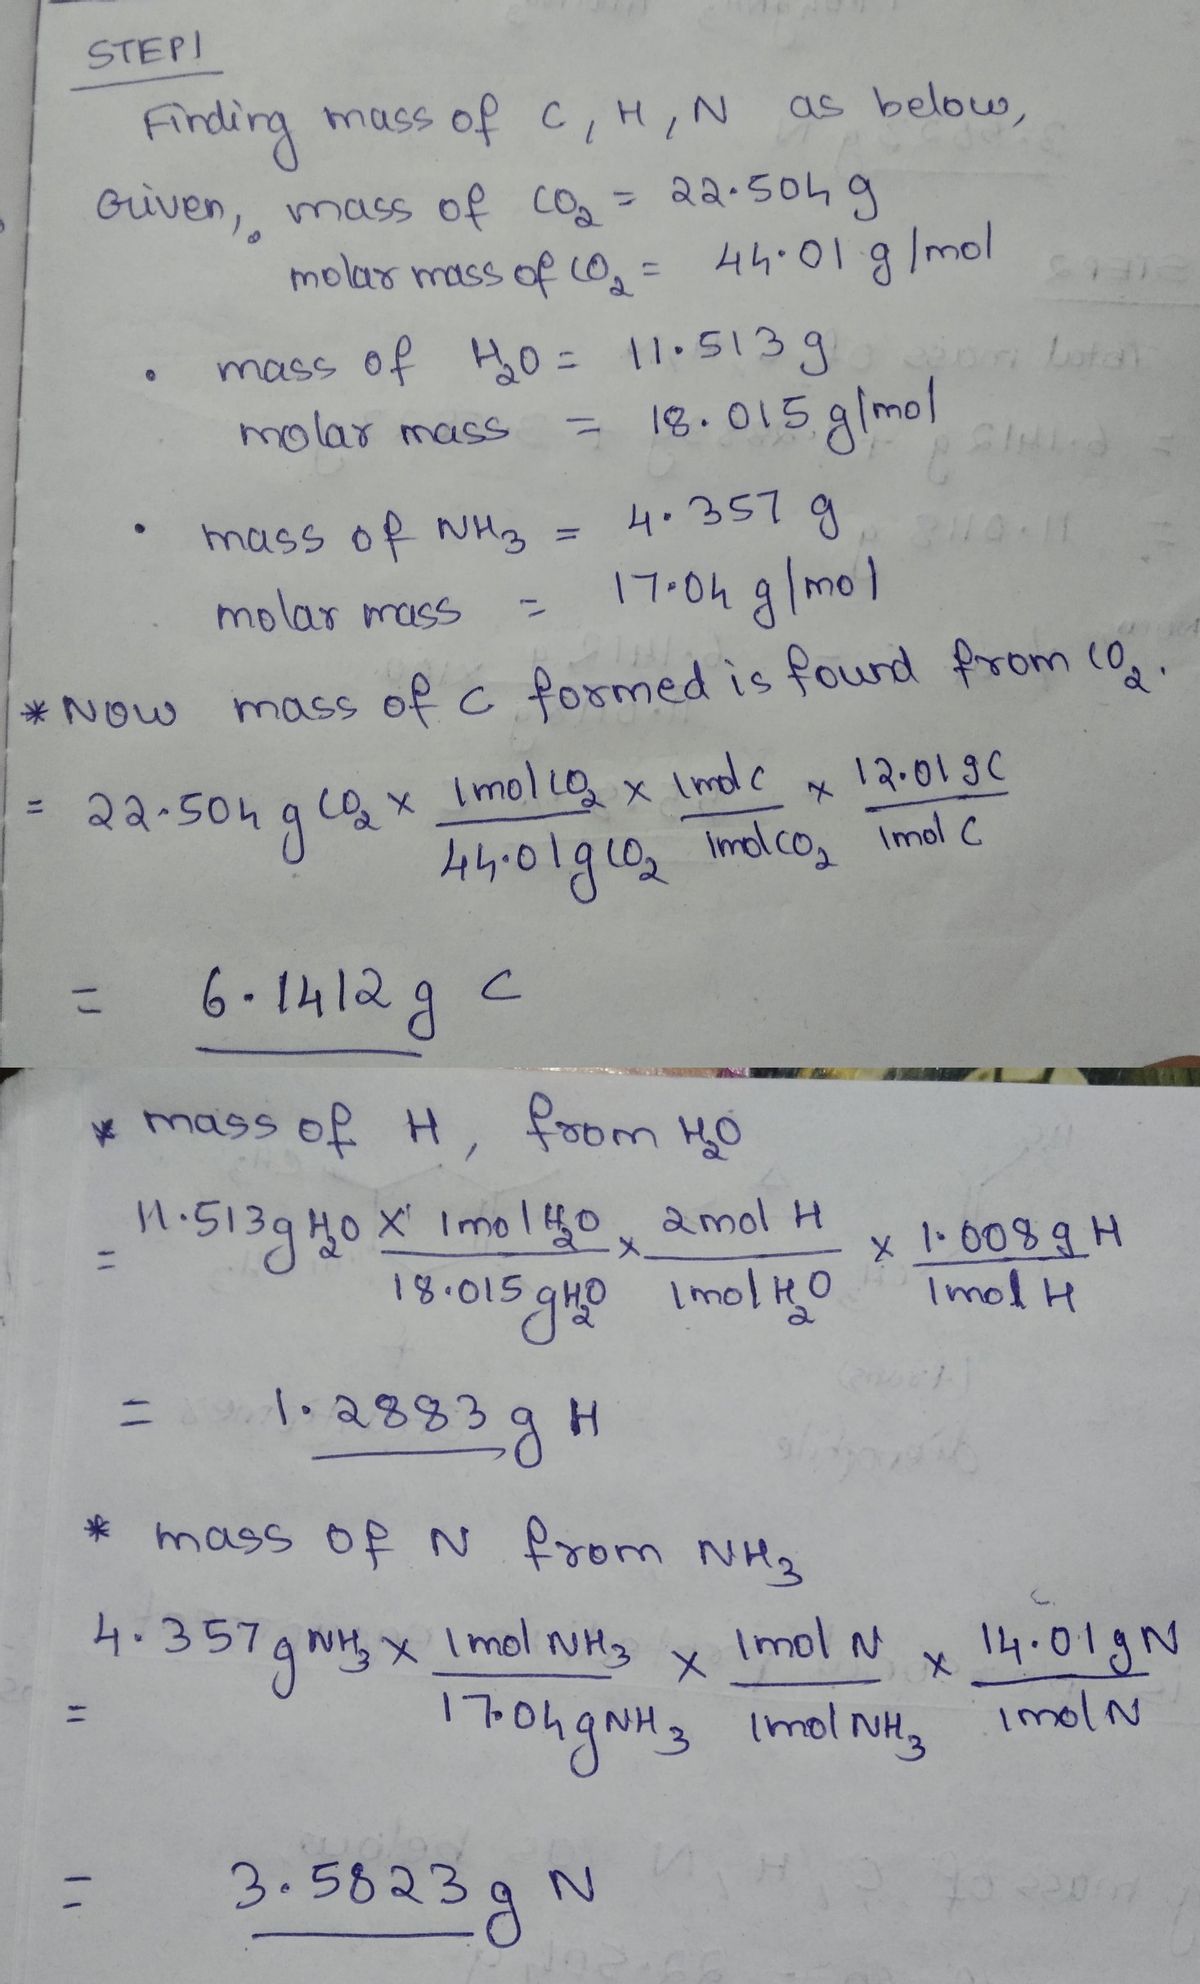 STEP1
Finding mass of C, H, N as below,
Given, mass of CO2 = 22.504 g
molar mass of CO2 = 44.01 g/mol
• mass of H2O = 11.513 g
molar mass = 18.015 g/mol
• mass of NH3 = 4.357 g
molar mass = 17.04 g/mol
* Now mass of C formed is found from CO2.
= 22.504 g CO2 × 1 mol CO2 / 44.01 g CO2 × 1 mol C / 1 mol CO2 × 12.01 g C / 1 mol C
= 6.1412 g C
* mass of H, from H2O
= 11.513 g H2O × 1 mol H2O / 18.015 g H2O × 2 mol H / 1 mol H2O × 1.008 g H / 1 mol H
= 1.2883 g H
* mass of N from NH3
= 4.357 g NH3 × 1 mol NH3 / 17.04 g NH3 × 1 mol N / 1 mol NH3 × 14.01 g N / 1 mol N
= 3.5823 g N